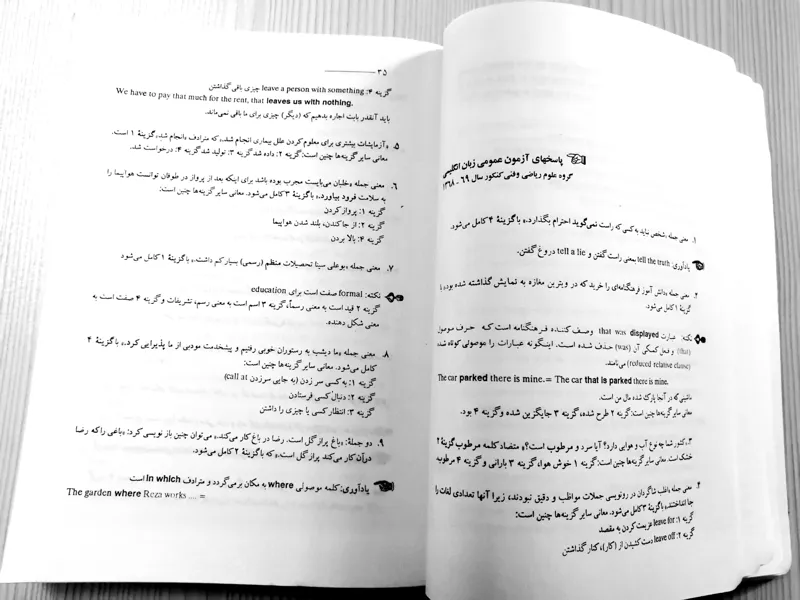 پاسخهای آزمون عمومی زبان انگلیسی
گروه علوم ریاضی وفنی کنکور سال ۶۹ - ۱۳۶۸
۱. معنی جمله «شخص نباید به کسی که راست نمی‌گوید احترام بگذارد.» با گزینهٔ ۴ کامل می‌شود.
یادآوری: tell the truth بمعنی راست گفتن و tell a lie دروغ گفتن.
۲. معنی جمله «دانش آموز فرهنگنامه‌ای را خرید که در ویترین مغازه به نمایش گذاشته شده بود.» با
گزینهٔ ۱ کامل می‌شود.
نکته: عبارت that was displayed وصف کننده فرهنگنامه است که حرف موصول
(that) و فعل کمکی آن (was) حذف شده است. اینگونه عبارات را موصولی کوتاه شده
(reduced relative clause) می‌نامند.
The car parked there is mine.= The car that is parked there is mine.
ماشینی که در آنجا پارک شده مال من است.
معانی سایر گزینه‌ها چنین است: گزینه ۲ طرح شده، گزینه ۳ جایگزین شده و گزینه ۴ بود.
۳. کشور شما چه نوع آب و هوایی دارد؟ آیا سرد و مرطوب است؟» متضاد کلمه مرطوب گزینهٔ ۲
خشک است. معانی سایر گزینه‌ها چنین است: گزینه ۱ خوش هوا، گزینه ۳ بارانی و گزینه ۴ مرطوب
۴. معنی جمله «اغلب شاگردان در رونویسی جملات مواظب و دقیق نبودند» زیرا آنها تعدادی لغات را
جا انداختند.» با گزینهٔ ۳ کامل می‌شود. معانی سایر گزینه‌ها چنین است:
گزینه ۱: leave for عزیمت کردن به مقصد
گزینه ۲: leave off دست کشیدن از (کار)، کنار گذاشتن
۳۵
گزینه ۴: leave a person with something چیزی باقی گذاشتن
We have to pay that much for the rent, that leaves us with nothing.
باید آنقدر بابت اجاره بدهیم که (دیگر) چیزی برای ما باقی نمی‌ماند.
۵. «آزمایشات بیشتری برای معلوم کردن علل بیماری انجام شد.» که مترادف «انجام شد» گزینهٔ ۱ است.
معانی سایر گزینه‌ها چنین است: گزینه ۲: داده شد گزینه ۳: تولید شد گزینه ۴: درخواست شد.
۶. معنی جمله «خلبان می‌بایست مجرب بوده باشد برای اینکه بعد از پرواز در طوفان توانست هواپیما را
به سلامت فرود بیاورد.» با گزینهٔ ۳ کامل می‌شود. معانی سایر گزینه‌ها چنین است:
گزینه ۱: پرواز کردن
گزینه ۲: از جا کندن، بلند شدن هواپیما
گزینه ۴: بالا بردن
۷. معنی جمله «بوعلی سینا تحصیلات منظم (رسمی) بسیار کم داشت.» با گزینهٔ ۱ کامل می‌شود
نکته: formal صفت است برای education
گزینه ۲ قید است به معنی رسماً، گزینه ۳ اسم است به معنی رسم، تشریفات و گزینه ۴ صفت است به
معنی شکل دهنده.
۸. معنی جمله «ما دیشب به رستوران خوبی رفتیم و پیشخدمت مودبی از ما پذیرایی کرد.» با گزینهٔ ۴
کامل می‌شود. معانی سایر گزینه‌ها چنین است:
گزینه ۱: به کسی سر زدن (به جایی سرزدن call at)
گزینه ۲: دنبال کسی فرستادن
گزینه ۳: انتظار کسی یا چیزی را داشتن
۹. دو جملهٔ: «باغ پراز گل است. رضا در باغ کار می‌کند.» می‌توان چنین باز نویسی کرد: «باغی را که رضا
در آن کار می‌کند پراز گل است.» که با گزینهٔ ۲ کامل می‌شود.
یادآوری: کلمه موصولی where به مکان برمی‌گردد و مترادف in which است
The garden where Reza works .... =